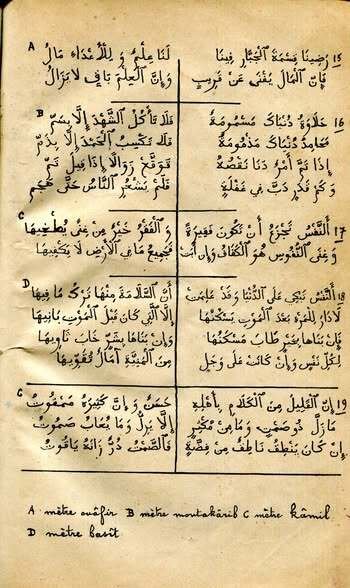 A
15 رَضِينَا قِسْمَةَ ٱلْجَبَّارِ فِينَا لَنَا عِلْمٌ وَ لِلْأَعْدَاءِ مَالُ
فَإِنَّ ٱلْمَالَ يَفْنَى عَنْ قَرِيبٍ وَ إِنَّ ٱلْعِلْمَ بَاقٍ لَا يَزَالُ
B
16 حَلَاوَةُ دُنْيَاكَ مَسْمُومَةٌ فَلَا تَأْكُلُ ٱلشَّهْدَ إِلَّا بِسُمّْ
مَحَامِدُ دُنْيَاكَ مَذْمُومَةٌ فَلَا تَكْسِبُ ٱلْحَمْدَ إِلَّا بِذَمّْ
إِذَا تَمَّ أَمْرٌ دَنَا نَقْصُهُ تَوَقَّعْ زَوَالًا إِذَا قِيلَ تَمّْ
وَ كَمْ قَدَرٍ دَبَّ فِي غَفْلَةٍ فَلَمْ يَشْعُرِ ٱلنَّاسُ حَتَّى هَجَمْ
C
17 أَلنَّفْسُ تَجْزَعُ أَنْ تَكُونَ فَقِيرَةً وَ ٱلْفَقْرُ خَيْرٌ مِنْ غِنًى يُطْغِيهَا
وَ غِنَى ٱلنُّفُوسِ هُوَ ٱلْكَفَافُ وَ إِنْ أَبَتْ فَجَمِيعُ مَا فِي ٱلْأَرْضِ لَا يَكْفِيهَا
D
18 أَلنَّفْسُ تَبْكِي عَلَى ٱلدُّنْيَا وَ قَدْ عَلِمَتْ أَنَّ ٱلسَّلَامَةَ مِنْهَا تَرْكُ مَا فِيهَا
لَا دَارَ لِلْمَرْءِ بَعْدَ ٱلْمَوْتِ يَسْكُنُهَا إِلَّا ٱلَّتِي كَانَ قَبْلَ ٱلْمَوْتِ بَانِيهَا
فَإِنْ بَنَاهَا بِخَيْرٍ طَابَ مَسْكَنُهَا وَ إِنْ بَنَاهَا بِشَرٍّ خَابَ ثَاوِيهَا
لِكُلِّ نَفْسٍ وَ إِنْ كَانَتْ عَلَى وَجَلٍ مِنَ ٱلْمَنِيَّةِ آمَالٌ تُقَوِّيهَا
C
19 إِنَّ ٱلْقَلِيلَ مِنَ ٱلْكَلَامِ بِأَهْلِهِ حَسَنٌ وَ إِنَّ كَثِيرَهُ مَمْقُوتُ
مَا زَلَّ ذُو صَمْتٍ وَ مَا مِنْ مُكْثِرٍ إِلَّا يَزِلُّ وَ مَا يُعَابُ صَمُوتُ
إِنْ كَانَ يَنْطِقُ نَاطِقٌ مِنْ فِضَّةٍ فَٱلصَّمْتُ دُرٌّ زَانَهُ يَاقُوتُ
A mètre ouâfir B mètre moutakârib C mètre kâmil
D mètre basît